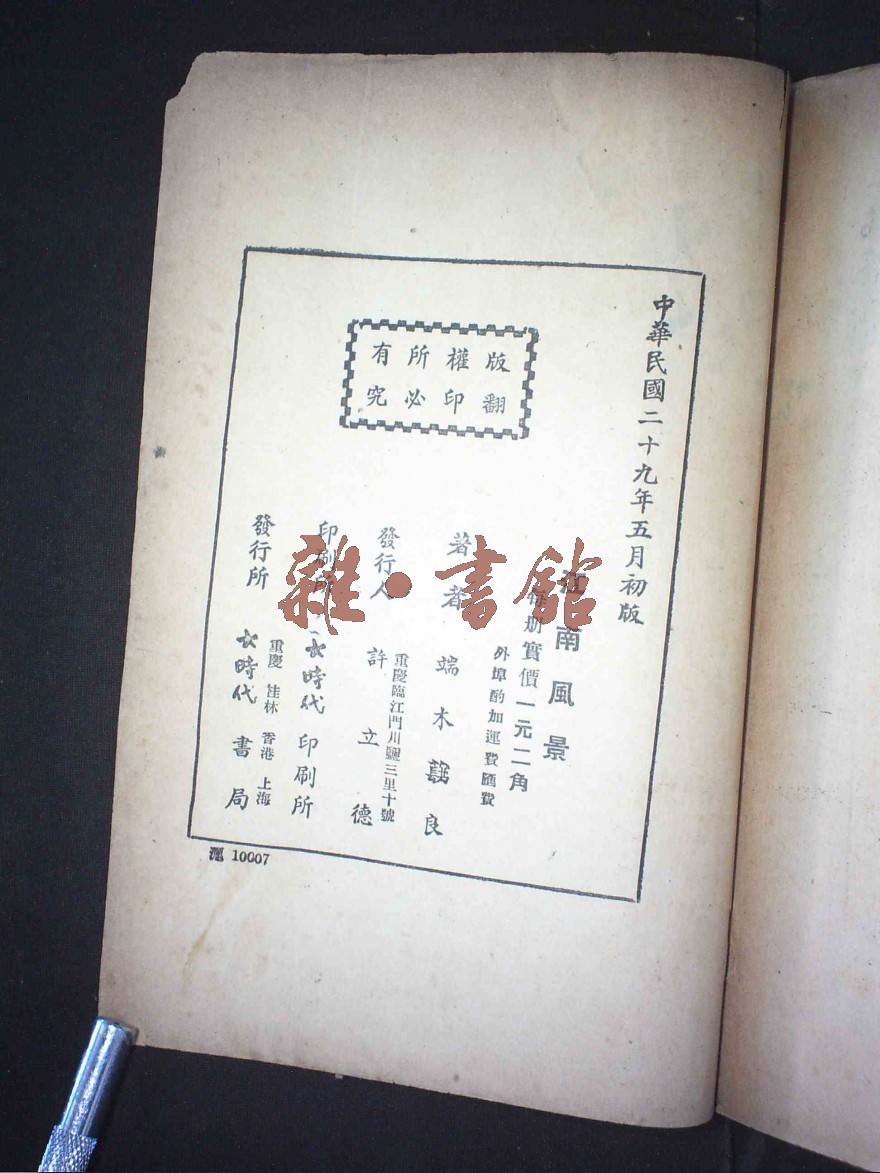 中華民國二十九年五月初版
江南風景
每册實價一元二角
外埠酌加運費匯費
版權所有
翻印必究
著者 端木蕻良
發行人 許立德
重慶臨江門川鹽三里十號
印刷所 大時代印刷所
發行所 大時代書局
重慶 桂林 香港 上海
10007
雜·書館